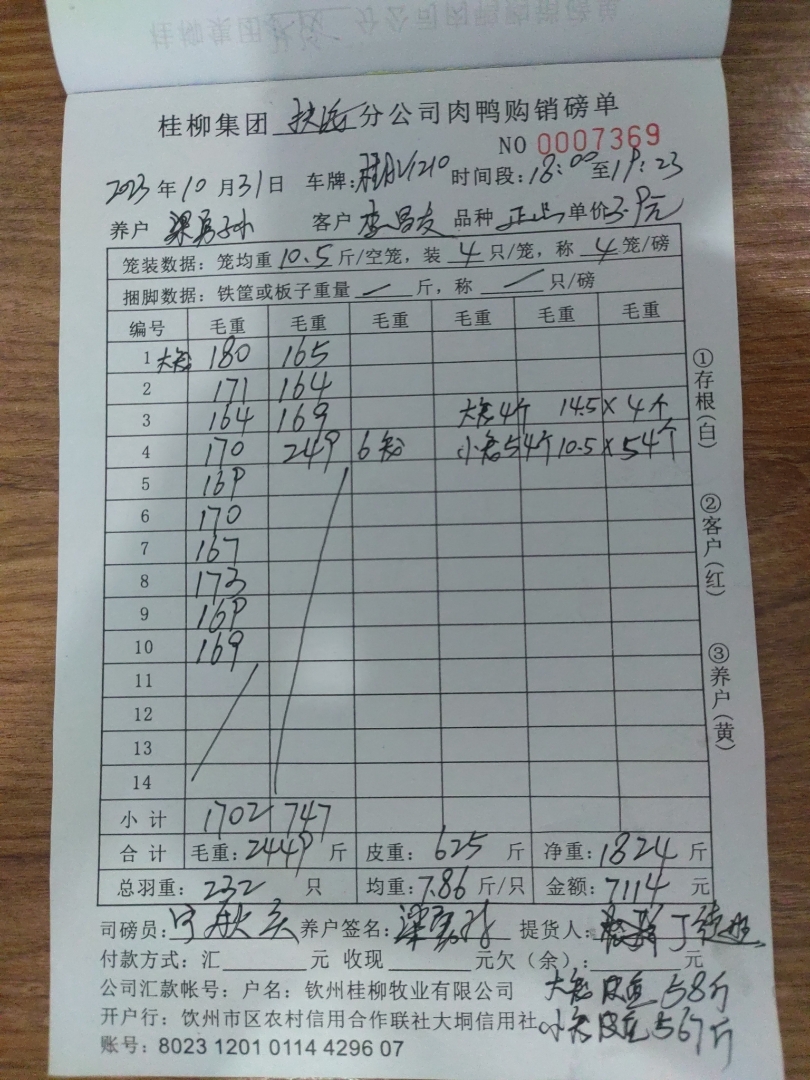 桂柳集团 分公司肉鸭购销磅单
NO 0007369
2023年10月31日 车牌: 1210 时间段:18:00至19:23
养户 客户 李昌友 品种 正 单价3.9元
笼装数据:笼均重10.5斤/空笼,装4只/笼,称4笼/磅
捆脚数据:铁筐或板子重量 — 斤,称 — 只/磅
编号 毛重 毛重 毛重 毛重 毛重 毛重
1 大笼 180 165
2 171 164
3 164 169 大笼4个 14.5×4个
4 170 249 6笼 小笼54个 10.5×54个
5 169
6 170
7 167
8 173
9 169
10 169
11
12
13
14
小计 1702 747
合计 毛重:2449斤 皮重:625斤 净重:1824斤
总羽重:232只 均重:7.86斤/只 金额:7114元
司磅员: 养户签名: 提货人:
付款方式:汇 元 收现 元欠(余):元
公司汇款帐号:户名:钦州桂柳牧业有限公司 大笼皮重58斤
开户行:钦州市区农村信用合作联社大垌信用社 小笼皮重567斤
账号:8023 1201 0114 4296 07
①存根(白)
②客户(红)
③养户(黄)